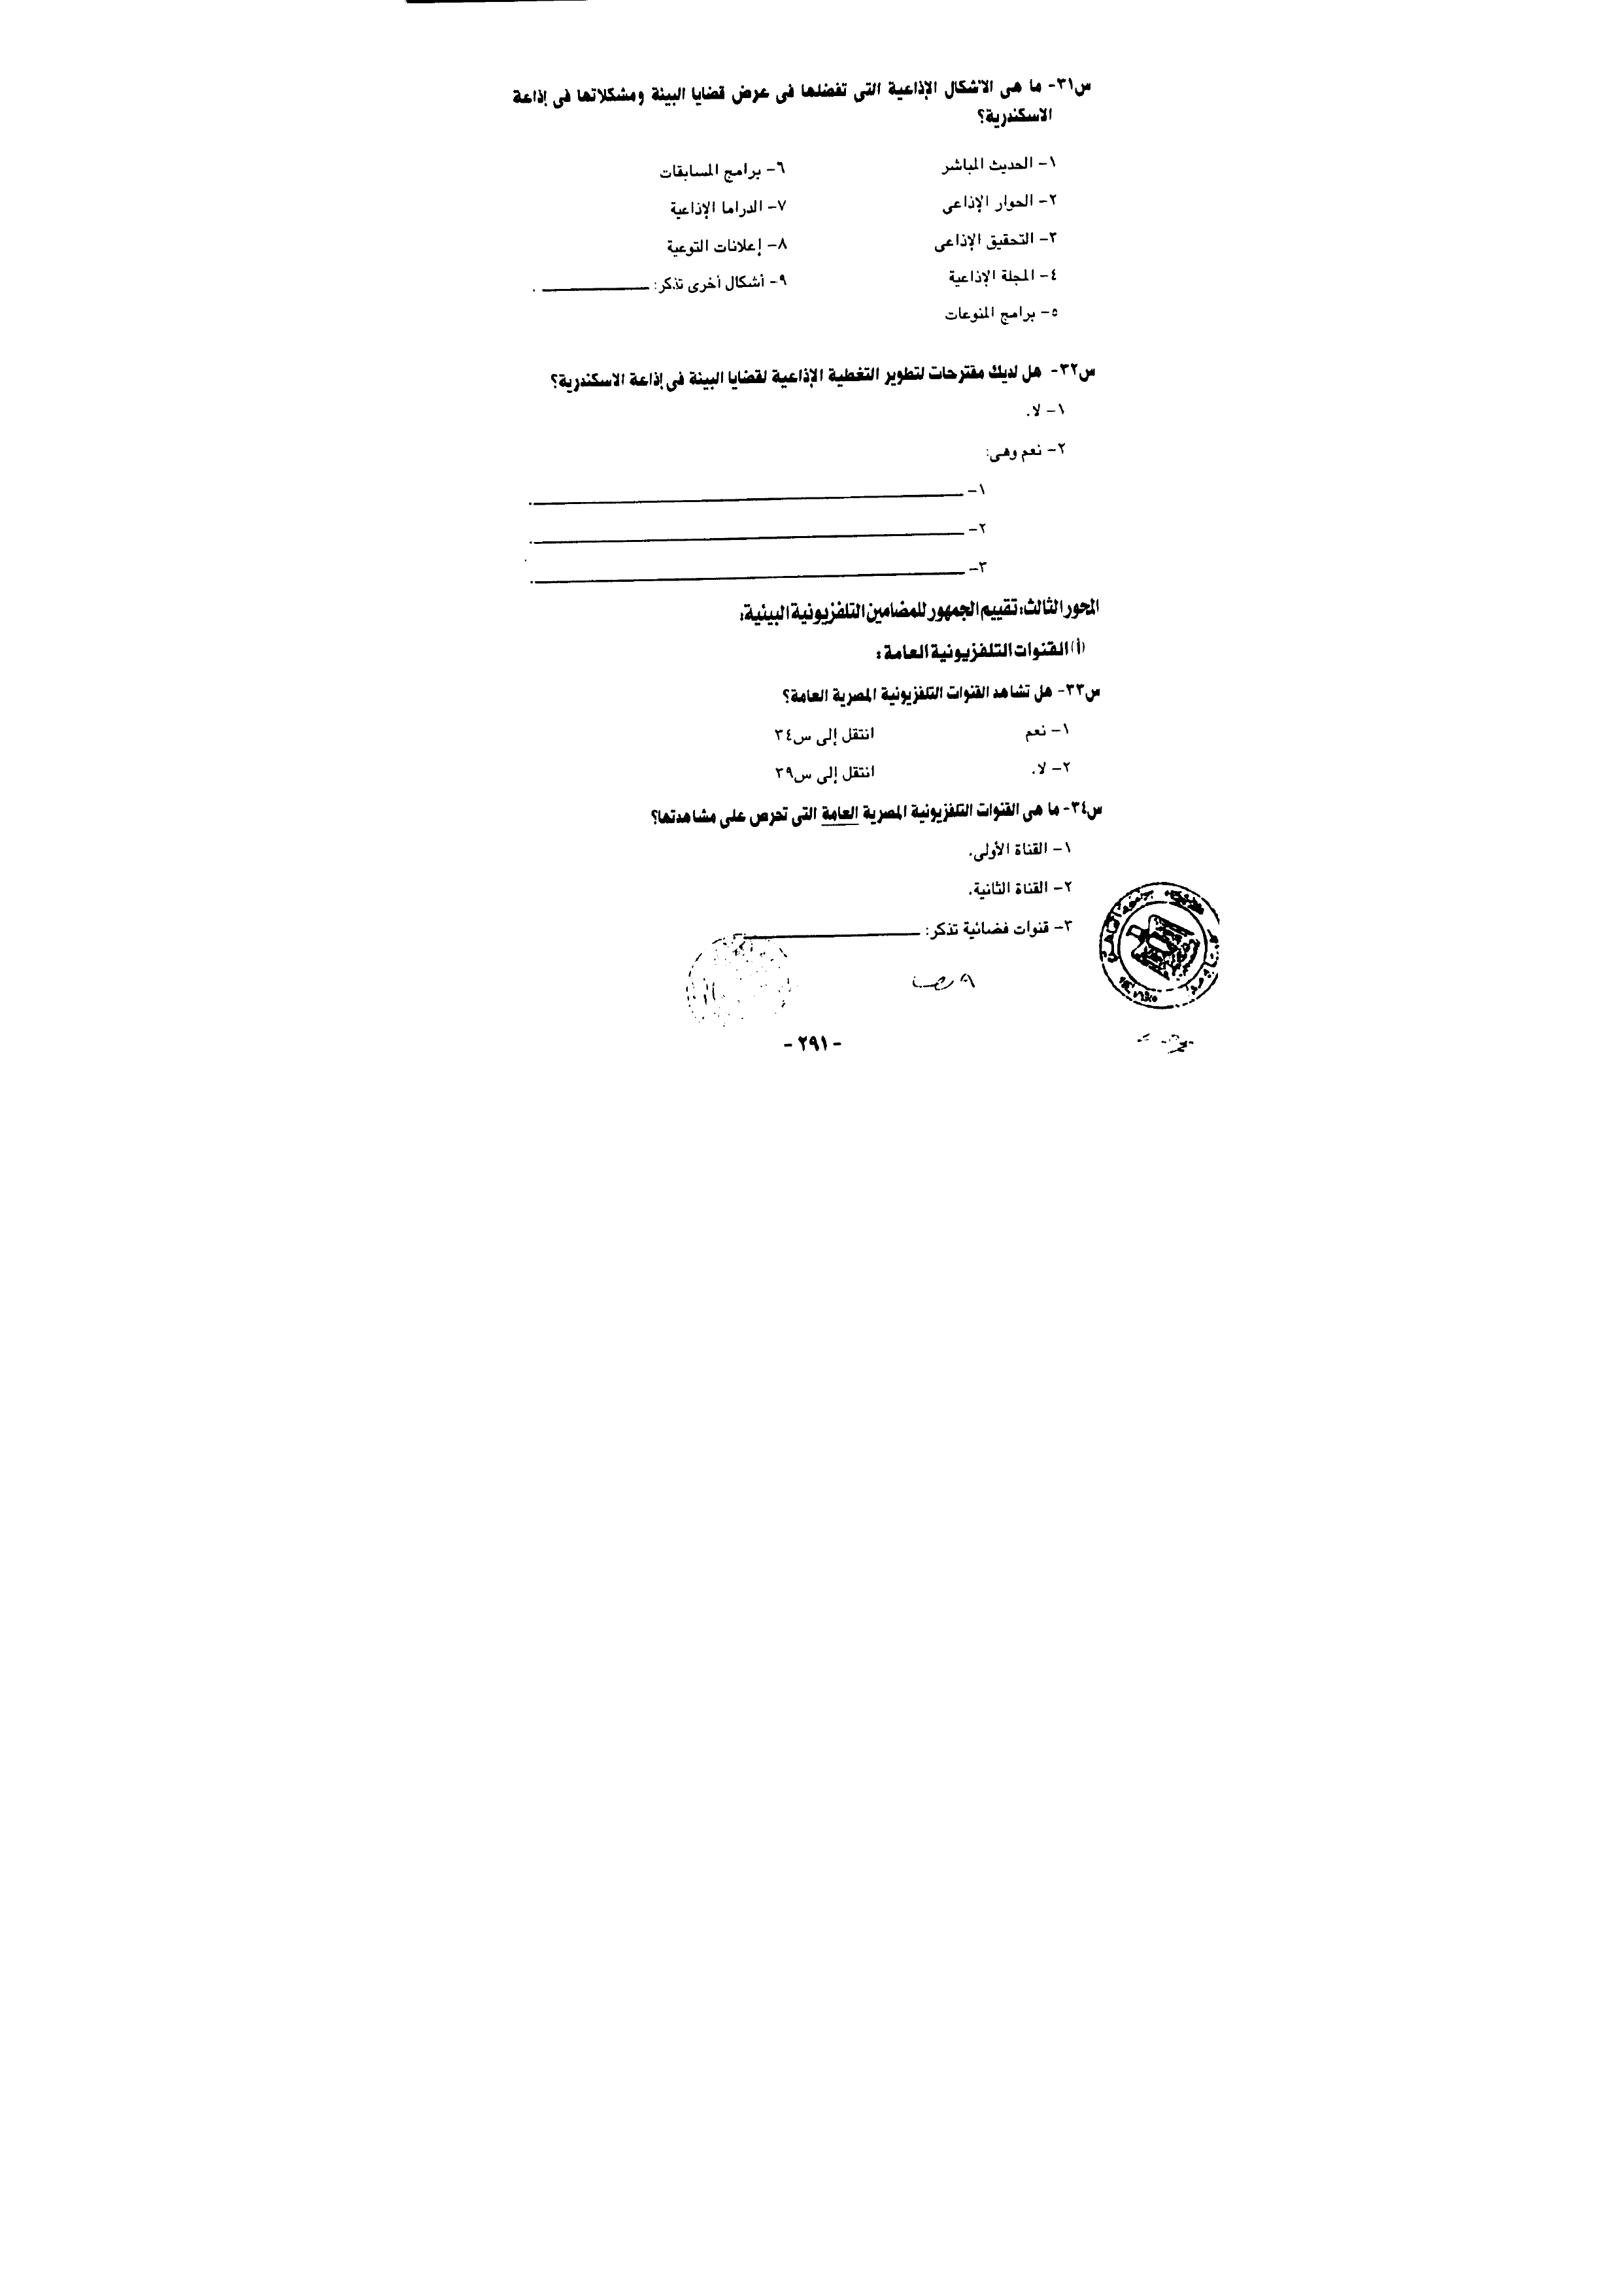 س٣١- ما هى الأشكال الإذاعية التى تفضلها فى عرض قضايا البيئة ومشكلاتها فى إذاعة
الاسكندرية؟
١- الحديث المباشر
٢- الحوار الإذاعى
٣- التحقيق الإذاعى
٤- المجلة الإذاعية
٥- برامج المنوعات
٦- برامج المسابقات
٧- الدراما الإذاعية
٨- إعلانات التوعية
٩- أشكال أخرى تذكر: ــــــــــــ .
س٣٢- هل لديك مقترحات لتطوير التغطية الإذاعية لقضايا البيئة فى إذاعة الاسكندرية؟
١- لا.
٢- نعم وهى:
١- ــــــــــــ.
٢- ــــــــــــ.
٣- ــــــــــــ.
المحور الثالث: تقييم الجمهور للمضامين التلفزيونية البيئية:
(أ) القنوات التلفزيونية العامة:
س٣٣- هل تشاهد القنوات التلفزيونية المصرية العامة؟
١- نعم انتقل إلى س٣٤
٢- لا. انتقل إلى س٣٩
س٣٤- ما هى القنوات التلفزيونية المصرية العامة التى تحرص على مشاهدتها؟
١- القناة الأولى.
٢- القناة الثانية.
٣- قنوات فضائية تذكر: ــــــــــــ
- ٢٩١ -